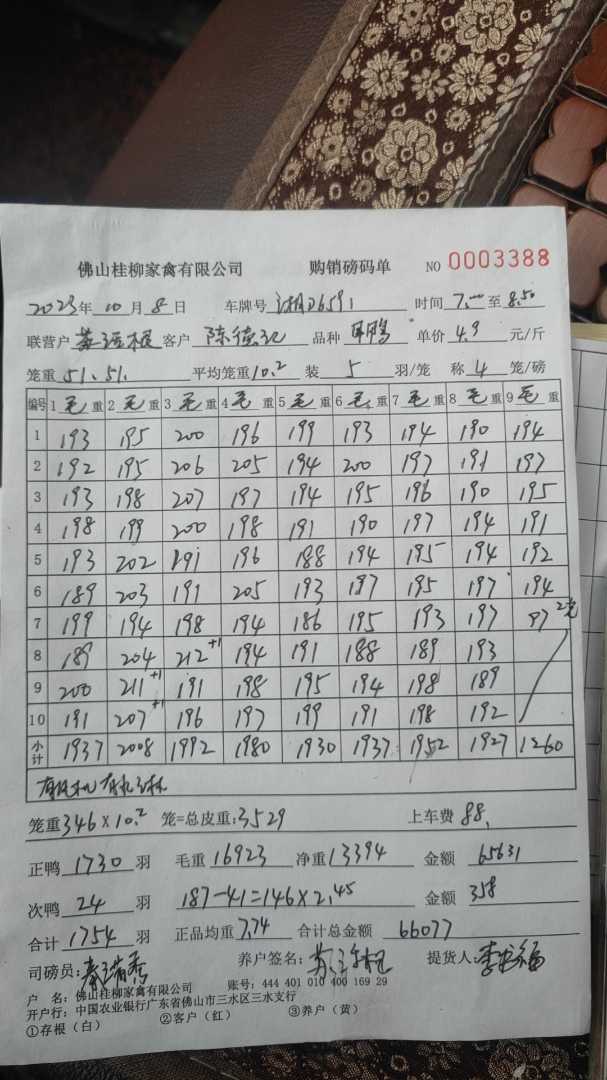 佛山桂柳家禽有限公司 购销磅码单 NO 0003388
2023年 10 月 8 日 车牌号 湘D6591 时间 7.00 至 8.50
联营户 客户 陈德记 品种 单价 4.9 元/斤
笼重 51.51. 平均笼重 10.2 装 5 羽/笼 称 4 笼/磅
编号 1 毛 重 2 毛 重 3 毛 重 4 毛 重 5 毛 重 6 毛 重 7 毛 重 8 毛 重 9 毛 重
1 193 195 200 196 199 193 194 190 194
2 192 195 206 205 194 200 197 191 197
3 193 198 207 197 194 195 196 190 195
4 198 199 200 198 191 190 197 194 191
5 193 202 191 196 188 194 195 194 192
6 189 203 191 205 193 197 195 197 194
7 199 194 198 194 186 195 193 197 97 2笼
8 189 204 212+1 194 191 188 189 193
9 200 211+1 191 198 195 194 198 189
10 191 207+1 196 197 199 191 198 192
小计 1937 2008 1992 1980 1930 1937 1952 1927 1260
笼重 346×10.2 笼=总皮重: 3529 上车费 88.
正鸭 1730 羽 毛重 16923 净重 13394 金额 65631
次鸭 24 羽 187-41=146×2.45 金额 358
合计 1754 羽 正品均重 7.74 合计总金额 66077
司磅员: 养户签名: 提货人:
户 名: 佛山桂柳家禽有限公司 账号: 444 401 010 400 169 29
开户行: 中国农业银行广东省佛山市三水区三水支行
①存根（白） ②客户（红） ③养户（黄）